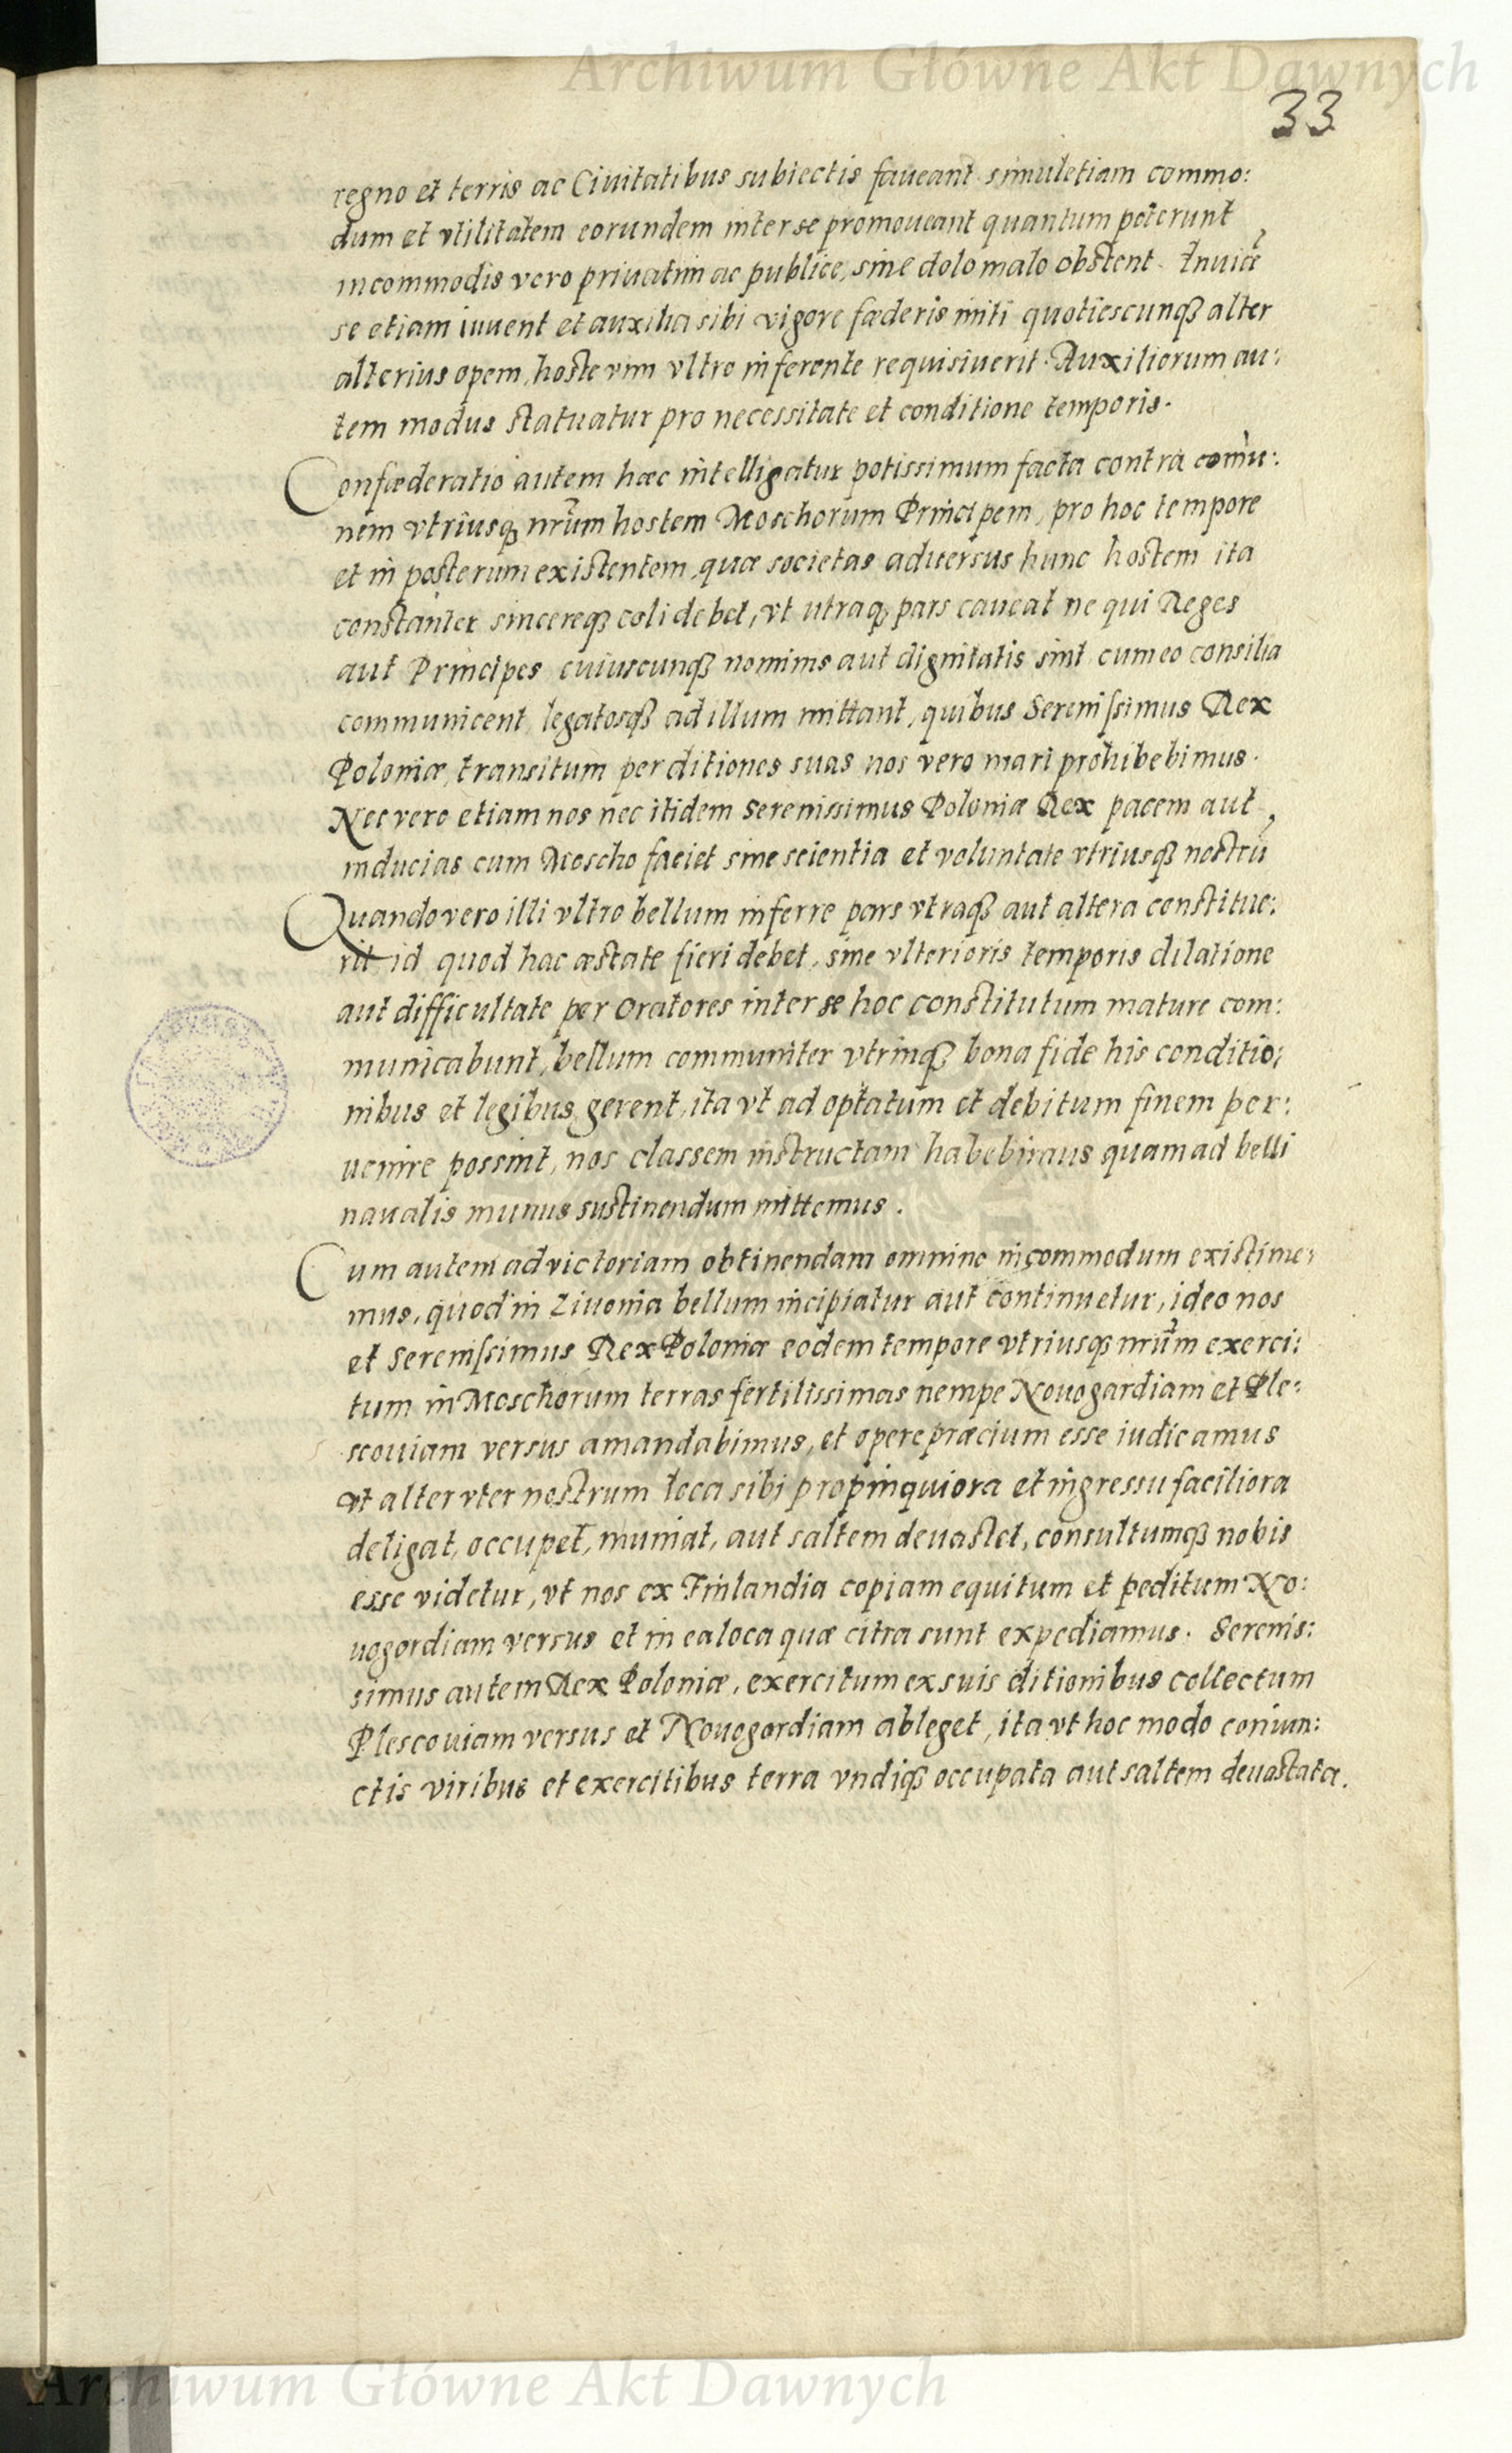 Archiwum Główne Akt Dawnych
33
regno et terris ac Ciuitatibus subiectis faueant simuletiam commo:
dum et vtilitatem eorundem inter se promoueant quantum poterunt
incommodis vero priuatim ac publice, sine dolo malo obstent. Inuicē
se etiam iuuent et auxilia sibi vigore fœderis initi quotiescunqȝ alter
alterius opem, hoste vim vltro inferente requisiuerit. Auxiliorum au:
tem modus statuatur pro necessitate et conditione temporis.
Confœderatio autem hæc intelligatur potissimum facta contra comu:
nem vtriusqȝ nrūm hostem Moschorum Principem, pro hoc tempore
et in posterum existentem, quæ societas aduersus hunc hostem ita
constanter sincereqȝ coli debet, vt utraqȝ pars caueat ne qui Reges
aut Principes cuiuscunqȝ nominis aut dignitatis sint cum eo consilia
communicent legatosqȝ ad illum mittant, quibus Serenissimus Rex
Poloniæ, transitum per ditiones suas nos vero mari prohibebimus.
Nec vero etiam nos nec itidem Serenissimus Poloniæ Rex pacem aut
inducias cum Moscho faciet sine scientia et voluntate vtriusqȝ nostrū
Quando vero illi vltro bellum inferre pars vtraqȝ aut altera constitue:
rit id quod hac æstate fieri debet, sine vlterioris temporis dilatione
aut difficultate per Oratores inter se hoc constitutum mature com:
municabunt, bellum communiter vtrinqȝ bona fide his conditio:
nibus et legibus gerent, ita vt ad optatum et debitum finem per:
uenire possint, nos classem instructam habebimus quam ad belli
naualis munus sustinendum mittemus.
Cum autem ad victoriam obtinendam omnino incommodum existime:
mus, quod in Liuonia bellum incipiatur aut continuetur, ideo nos
et Serenissimus Rex Poloniæ eodem tempore vtriusqȝ nrūm exerci:
tum in Moschorum terras fertilissimas nempe Nouogardiam et Ple:
scouiam versus amandabimus, et opere præcium esse iudicamus
vt alter vter nostrum loca sibi propinquiora et ingressu faciliora
deligat, occupet, muniat, aut saltem deuastet, consultumqȝ nobis
esse videtur, vt nos ex Finlandia copiam equitum et peditum No:
uogordiam versus et in ea loca quæ citra sunt expediamus. Serenis:
simus autem Rex Poloniæ, exercitum ex suis ditionibus collectum
Plescouiam versus et Nouogordiam ableget, ita vt hoc modo coniun:
ctis viribus et exercitibus terra vndiqȝ occupata aut saltem deuastata.
Archiwum Główne Akt Dawnych